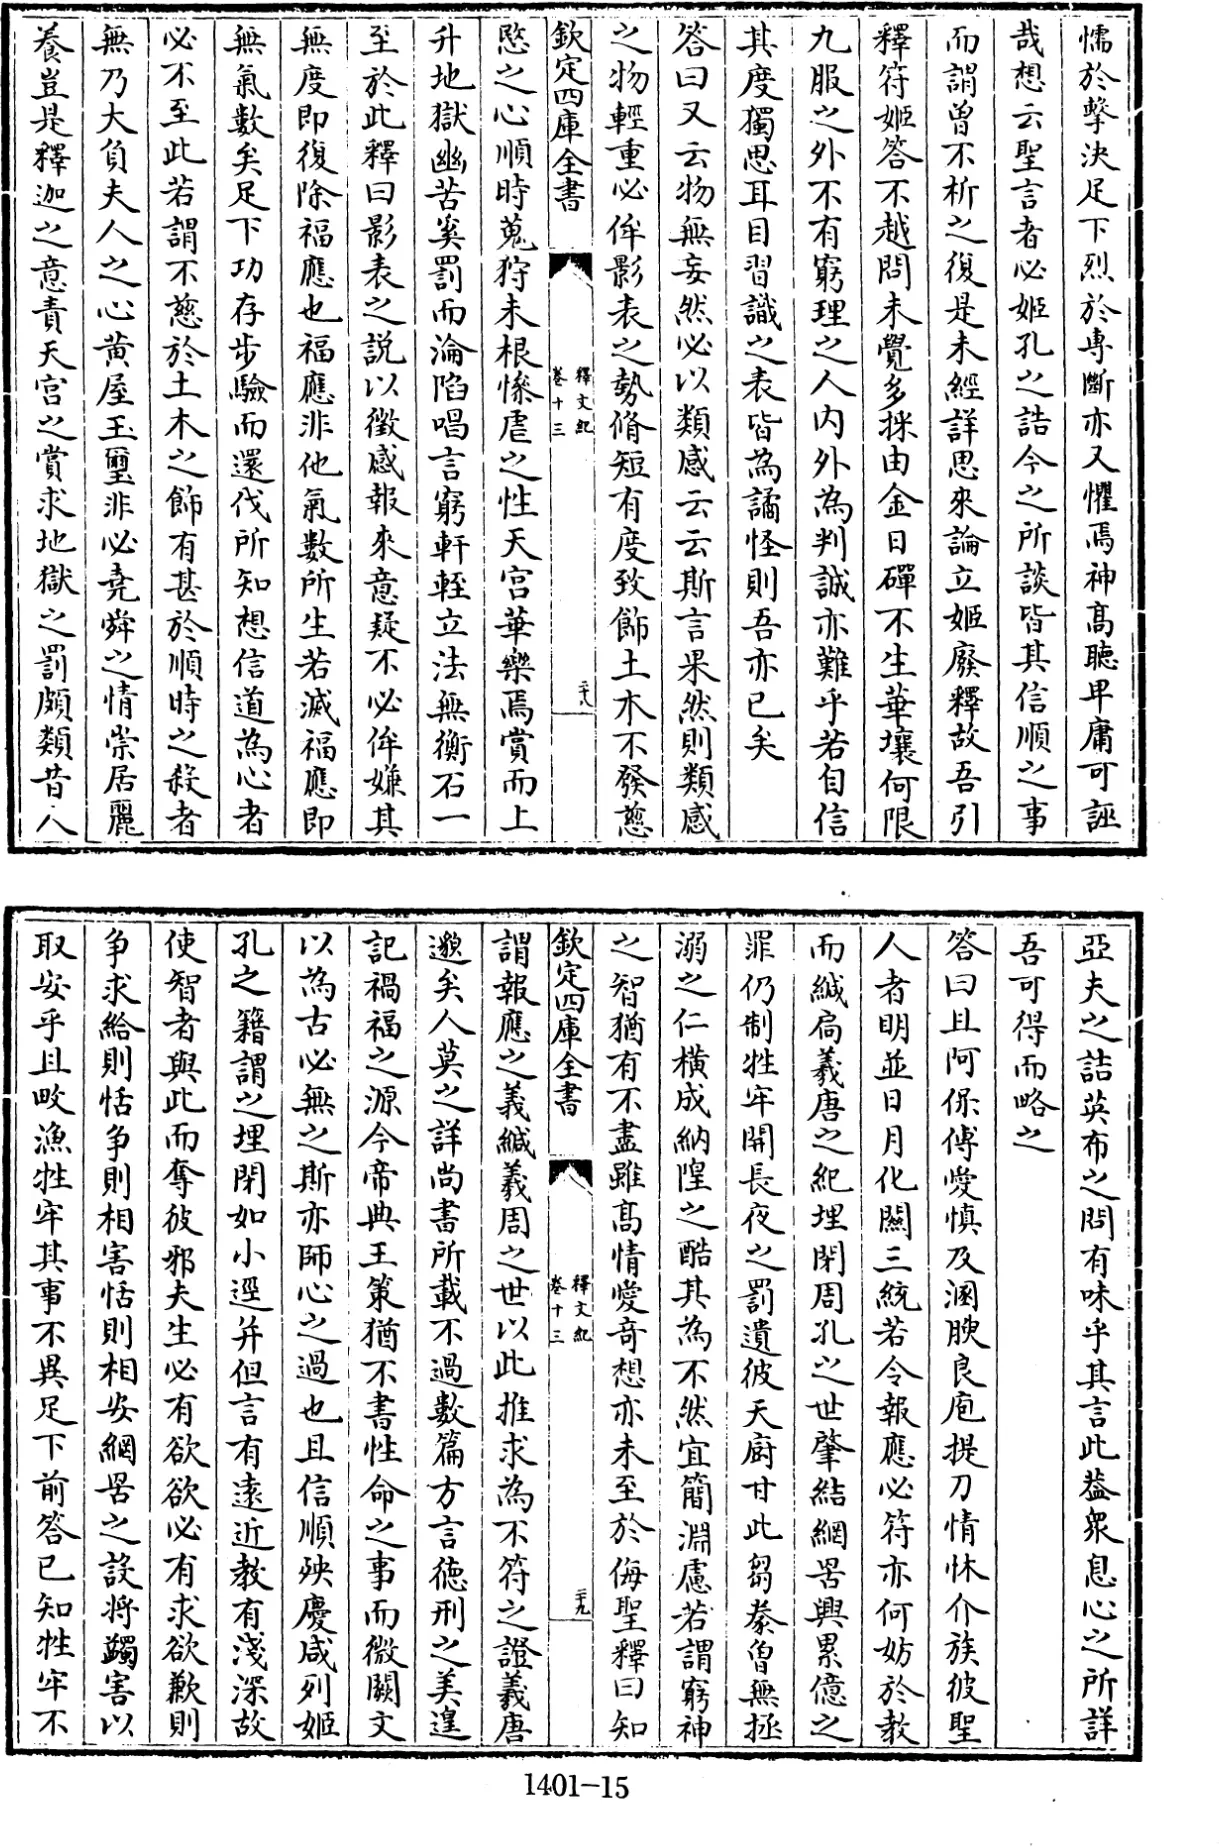 懦於擊決足下烈於專斷亦又懼焉神高聽卑庸可誣
哉想云聖言者必姬孔之誥今之所談皆其信順之事
而謂曾不析之復是未經詳思來論立姬廢釋故吾引
釋符姬答不越問未覺多採由金日磾不生華壤何限
九服之外不有窮理之人內外為判誠亦難乎若自信
其度獨思耳目習識之表皆為譎怪則吾亦已矣
答曰又云物無妄然必以類感云云斯言果然則類感
之物輕重必侔影表之勢脩短有度致飾土木不發慈
欽定四庫全書
釋文紀
卷十三
二十八
愍之心順時蒐狩未根慘虐之性天宮華樂焉賞而上
升地獄幽苦奚罰而淪陷唱言窮軒輊立法無衡石一
至於此釋曰影表之說以徵感報來意疑不必侔嫌其
無度即復除福應也福應非他氣數所生若滅福應即
無氣數矣足下功存步驗而還伐所知想信道為心者
必不至此若謂不慈於土木之飾有甚於順時之殺者
無乃大負夫人之心黃屋玉璽非必堯舜之情崇居麗
養豈是釋迦之意責天宮之賞求地獄之罰頗類昔人
亞夫之詰英布之問有味乎其言此蓋衆息心之所詳
吾可得而略之
答曰且阿保傅愛慎及溷腴良庖提刀情怵介族彼聖
人者明並日月化關三統若令報應必符亦何妨於教
而緘扃羲唐之紀埋閉周孔之世肇結網罟興累億之
罪仍制牲牢開長夜之罰遺彼天廚甘此芻豢曾無拯
溺之仁橫成納隍之酷其為不然宜簡淵慮若謂窮神
之智猶有不盡雖高情愛奇想亦未至於侮聖釋曰知
欽定四庫全書
釋文紀
卷十三
二十九
謂報應之義緘羲周之世以此推求為不符之證羲唐
邈矣人莫之詳尚書所載不過數篇方言德刑之美遑
記禍福之源今帝典王策猶不書性命之事而微闕文
以為古必無之斯亦師心之過也且信順殃慶咸列姬
孔之籍謂之埋閉如小逕并但言有遠近教有淺深故
使智者與此而奪彼邪夫生必有欲欲必有求欲歉則
爭求給則恬爭則相害恬則相安網罟之設將蠲害以
取安乎且畋漁牲牢其事不異足下前答已知牲牢不
1401-15